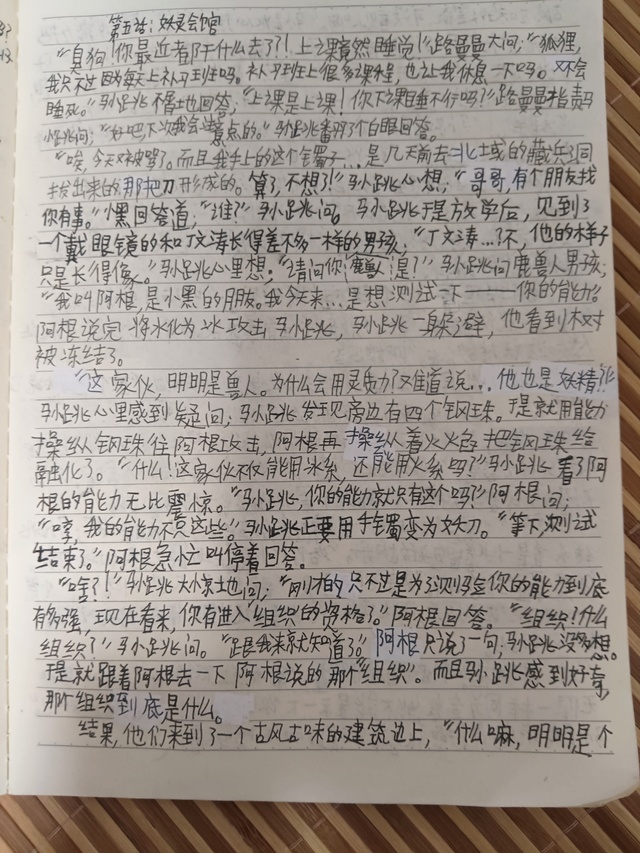 第五话：妖灵会馆
“臭狗！你最近者阝干什么去了?! 上课竟然睡觉!”路曼曼大问；“狐狸，
我只不过因为每天上补习班吗。补习班上很多课程，也让我休息一下吗。又不会
睡死。”马小跳不屑地回答；“上课是上课！你下课睡不行吗?!”路曼曼指责马
小跳问；“好吧下次我会注意点的。”马小跳翻了个白眼回答。
“唉，今天又被骂了。而且我手上的这个镯子…是几天前去北域的藏兵洞
拔出来的那把刀形成的。算了，不想了!”马小跳心想；“哥哥，有个朋友找
你有事。”小黑回答道；“谁?”马小跳问。马小跳于是放学后，见到了
一个戴眼镜的和丁文涛长得差不多一样的男孩；“丁文涛…?不，他的样子
只是长得像。”马小跳心里想；“请问你(鹿兽人)是?”马小跳问鹿兽人男孩；
“我叫阿根，是小黑的朋友。我今天来…是想测试一下——你的能力!”
阿根说完将水化为冰攻击马小跳，马小跳一身躲避，他看到树
被冻结了。
“这家伙，明明是兽人。为什么会用灵质力?难道说…他也是妖精?!”
马小跳心里感到疑问；马小跳发现旁边有四个钢珠。于是就用能力
操纵钢珠往阿根攻击，阿根再操纵着火焰把钢珠给
融化了。“什么！这家伙不仅能用冰系，还能用火系吗?”马小跳看了阿
根的能力无比震惊。“马小跳，你的能力就只有这个吗?”阿根问；
“哼，我的能力不只这些。”马小跳正要用手镯变为妖刀。“等下，测试
结束了。”阿根急忙叫停着回答。
“啥?!”马小跳大惊地问；“刚才的只不过是为了测验你的能力到底
有多强，现在看来，你有进入“组织”的资格了。”阿根回答。“组织！什么
组织?”马小跳问。“跟我来就知道了。”阿根只说了一句；马小跳没多想。
于是就跟着阿根去一下阿根说的那个“组织”。而且马小跳感到好奇，
那个组织到底是什么。
结果，他们来到了一个古风古味的建筑边上，“什么嘛，明明是个